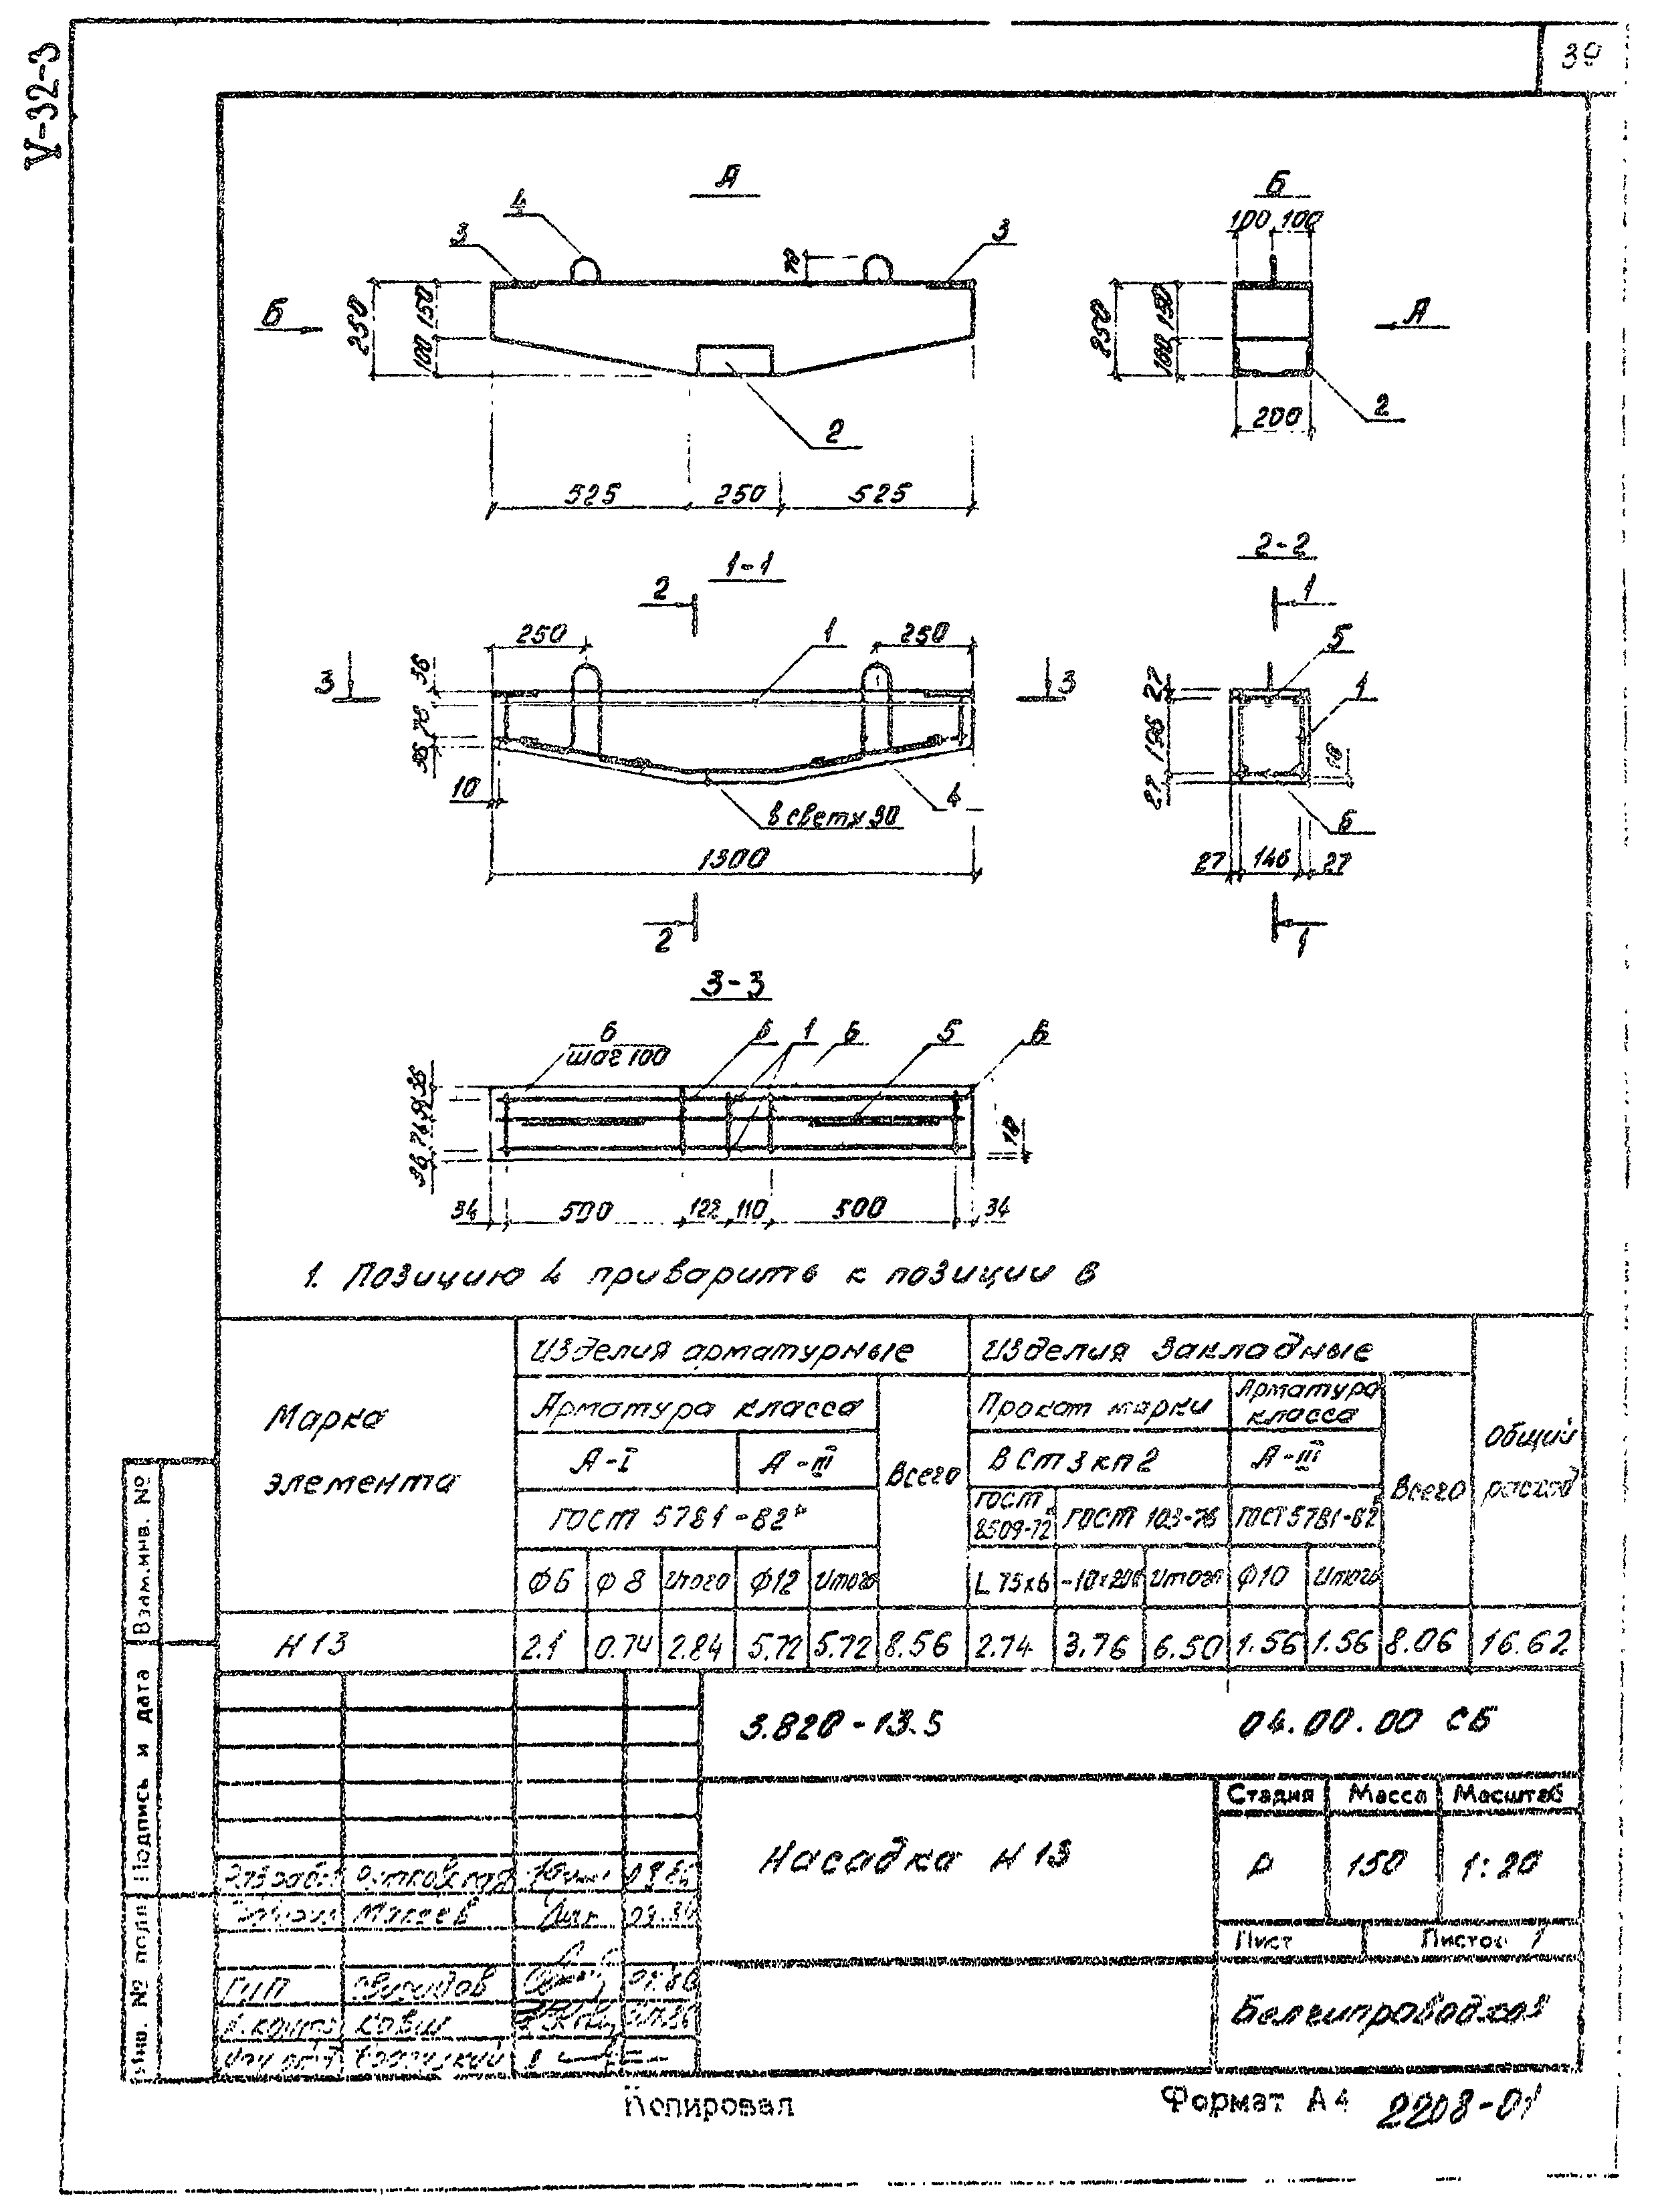 V-32-3
39
А
Б
4
3
3
70
100 100
Б
250
150
100
2
250
150
100
А
2
200
525 250 525
1-1
2-2
2
1
250
1
250
5
3
3
36
76
36
27
196
27
18
1
10
4
в свету 30
6
1300
27 146 27
2
1
3-3
6
шаг 100
6
1
6
5
6
36
18
34 500 122 110 500 34
1. Позицию 4 приварить к позиции 6
Марка элемента
Изделия арматурные
Изделия закладные
Общий расход
Арматура класса
Всего
Прокат марки
Арматура класса
Всего
А-I
А-III
ВСт3кп2
А-III
ГОСТ 5781-82*
ГОСТ 8509-72
ГОСТ 103-76
ГОСТ 5781-82*
Ф6 Ф8 Итого Ф12 Итого L 75х6 -10х200 Итого Ф10 Итого
Н13 2.1 0.74 2.84 5.72 5.72 8.56 2.74 3.76 6.50 1.56 1.56 8.06 16.62
Взам.инв. №
Подпись и дата
Инв. № подл
3.820-13.5 04.00.00 СБ
Насадка Н13
Стадия Масса Масштаб
Р 150 1:20
Лист Листов 1
Белгипроводхоз
Макеев
ГИП
Н.контр Ковш
Копировал
Формат А4
2208-01